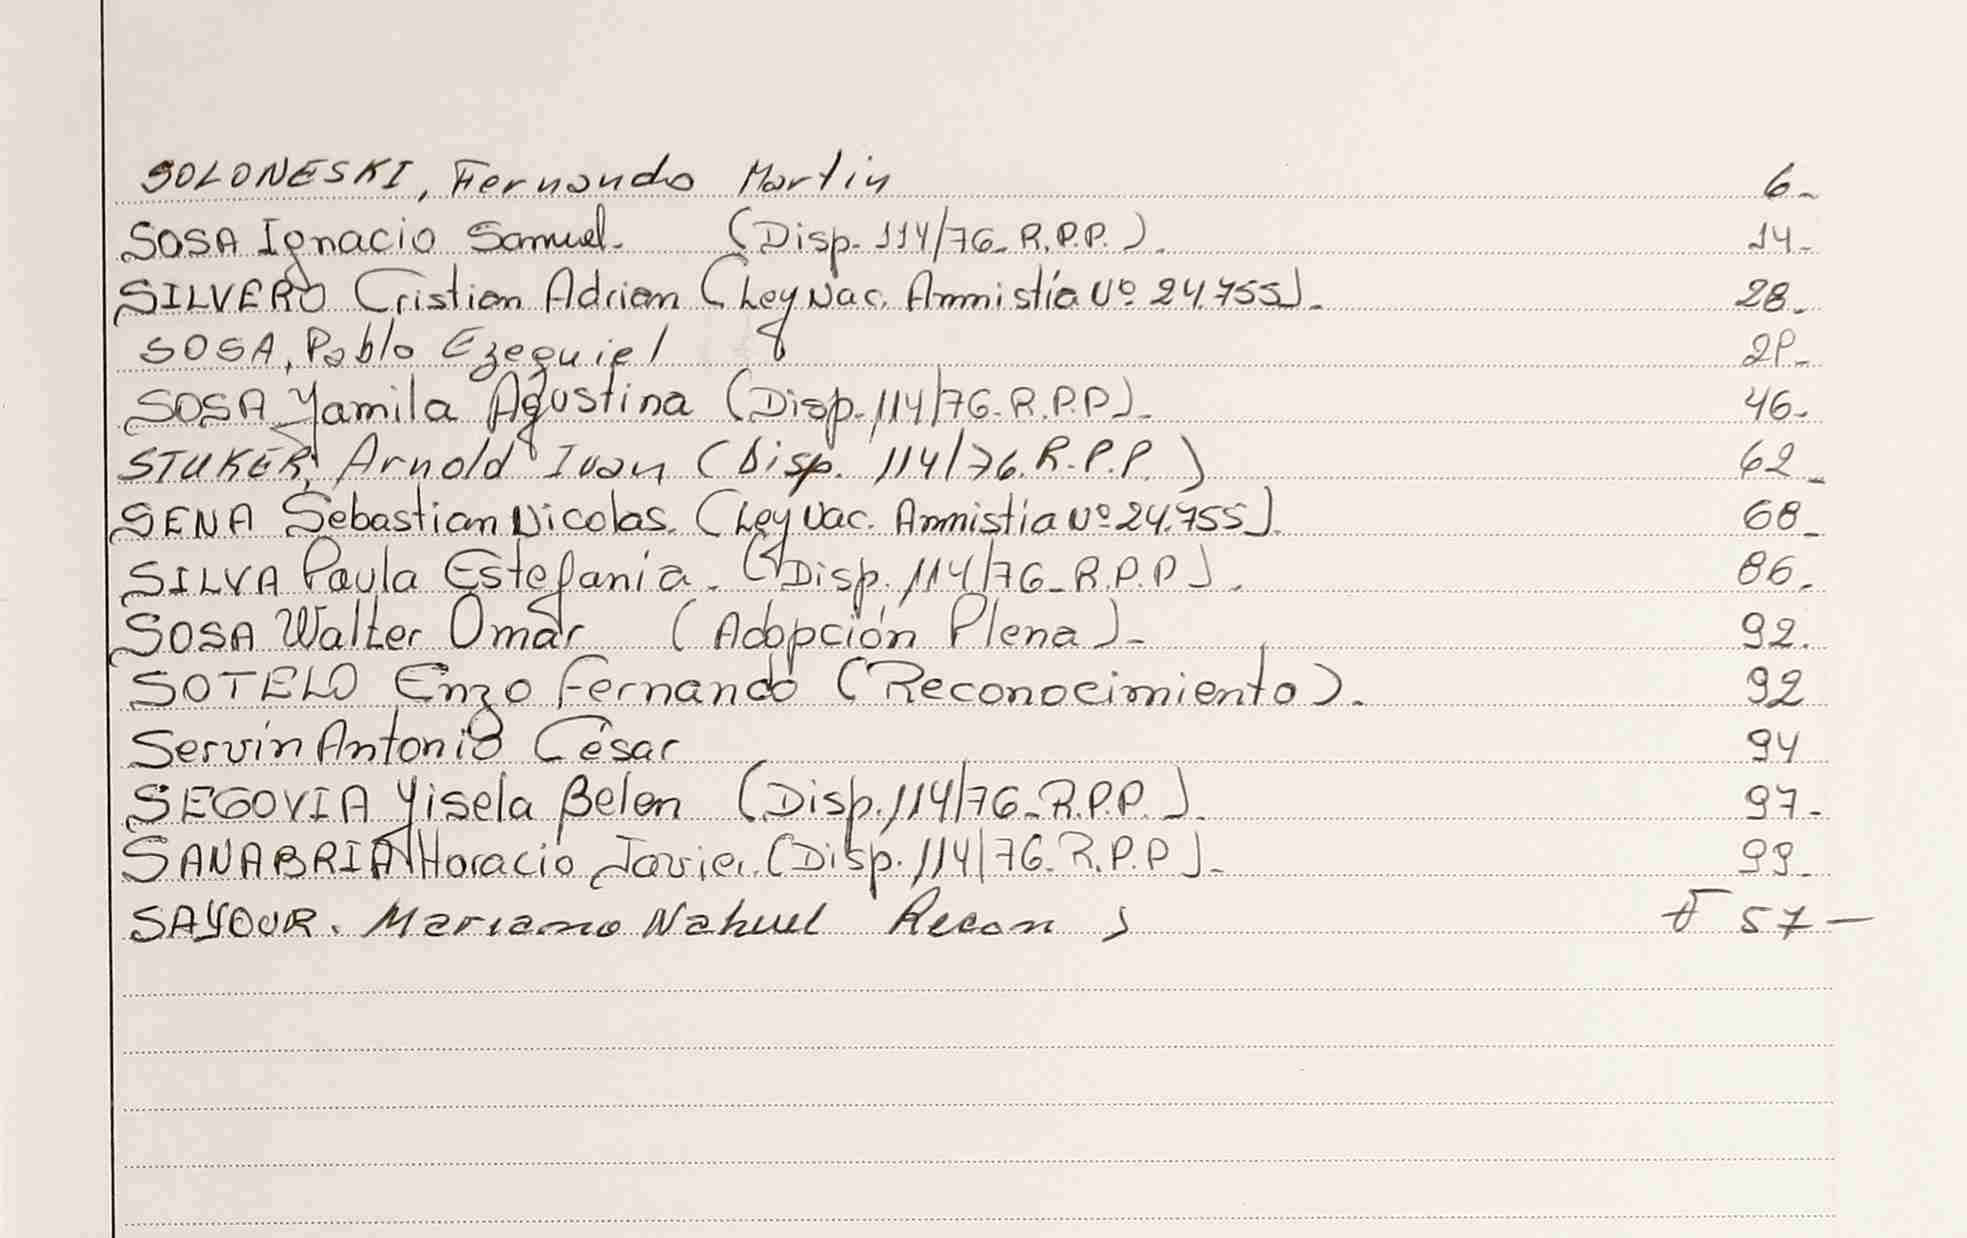 SOLONESKI, Fernando Martin 6-
SOSA Ignacio Samuel. (Disp. 114/76- R.P.P.). 14-
SILVERO Cristian Adrian (Ley Nac. Amnistía Nº 24.755). 28-
SOSA, Pablo Ezequiel 29-
SOSA Yamila Agustina (Disp. 114/76- R.P.P)- 46-
STUKER, Arnold Ivan (Disp. 114/76. R.P.P.) 62-
SENA Sebastian Nicolas. (Ley Nac. Amnistia Nº 24.755). 68-
SILVA Paula Estefania. (Disp. 114/76- R.P.P). 86.
SOSA Walter Omar (Adopción Plena)- 92.
SOTELO Enzo Fernando (Reconocimiento). 92
Servín Antonio César 94
SEGOVIA Yisela Belen (Disp. 114/76- R.P.P.). 97-
SANABRIA Horacio Javier. (Disp. 114/76- R.P.P)- 99-
SAYOUR. Mariano Nahuel Recon 57-